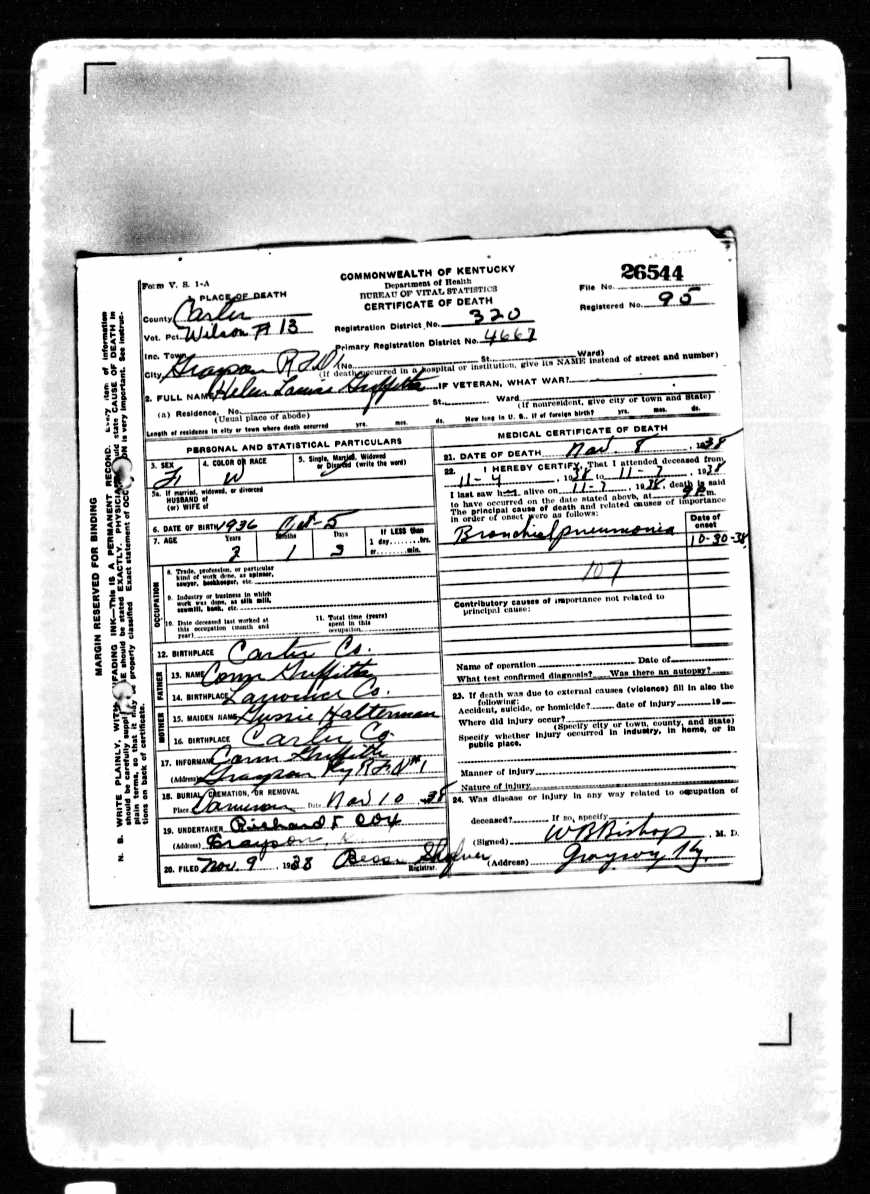 Form V. S. 1-A
COMMONWEALTH OF KENTUCKY
Department of Health
BUREAU OF VITAL STATISTICS
CERTIFICATE OF DEATH
26544
File No.
Registered No. 95
PLACE OF DEATH
County Carter
Vot. Pct. Wilson # 13
Registration District No. 320
Primary Registration District No. 4667
Inc. Town
City Grayson R
No. St. Ward)
(If death occurred in a hospital or institution, give its NAME instead of street and number)
2. FULL NAME Helen Louise Griffith IF VETERAN, WHAT WAR?
(a) Residence. No. St. Ward
(Usual place of abode) (If nonresident, give city or town and State)
Length of residence in city or town where death occurred yrs. mos. ds. How long in U. S., if of foreign birth? yrs. mos. ds.
PERSONAL AND STATISTICAL PARTICULARS
3. SEX F
4. COLOR OR RACE W
5. Single, Married, Widowed or Divorced (write the word)
5a. If married, widowed, or divorced
HUSBAND of
(or) WIFE of
6. DATE OF BIRTH 1936 Oct-5
7. AGE Years 2 Months 1 Days 3 If LESS than 1 day hrs. or min.
OCCUPATION
8. Trade, profession, or particular
kind of work done, as spinner,
sawyer, bookkeeper, etc.
9. Industry or business in which
work was done, as silk mill,
sawmill, bank, etc.
10. Date deceased last worked at
this occupation (month and
year)
11. Total time (years)
spent in this
occupation
12. BIRTHPLACE Carter Co.
FATHER
13. NAME Griffith
14. BIRTHPLACE Lawrence Co.
MOTHER
15. MAIDEN NAME Halterman
16. BIRTHPLACE Carter Co
17. INFORMANT Griffith
(Address) Grayson Ky R.F.D #1
18. BURIAL, CREMATION, OR REMOVAL
Place Date Nov 10 38
19. UNDERTAKER Richard F Cox
(Address) Grayson,
20. FILED Nov. 9, 1938 Bess Registrar.
MEDICAL CERTIFICATE OF DEATH
21. DATE OF DEATH Nov. 8, 1938
22. I HEREBY CERTIFY, That I attended deceased from
11-4, 1938 to 11-7, 1938
I last saw her alive on 11-7, 1938, death is said
to have occurred on the date stated above, at m.
The principal cause of death and related causes of importance
in order of onset were as follows:
Date of onset
Bronchial pneumonia 10-30-38
107
Contributory causes of importance not related to
principal cause:
Name of operation Date of
What test confirmed diagnosis? Was there an autopsy?
23. If death was due to external causes (violence) fill in also the
following:
Accident, suicide, or homicide? date of injury 19
Where did injury occur?
(Specify city or town, county, and State)
Specify whether injury occurred in industry, in home, or in
public place.
Manner of injury
Nature of injury
24. Was disease or injury in any way related to occupation of
deceased? If so, specify
(Signed) W B Bishop, M. D.
(Address) Grayson Ky.
MARGIN RESERVED FOR BINDING